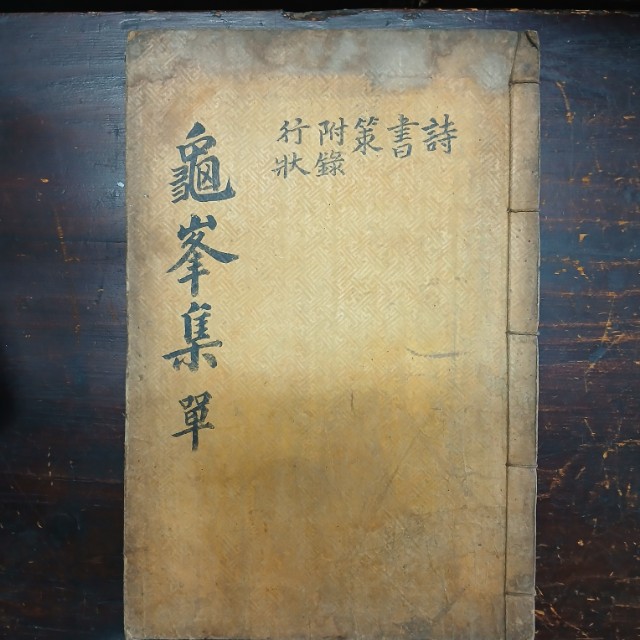 詩
書
策
附錄
行狀
龜峯集 單